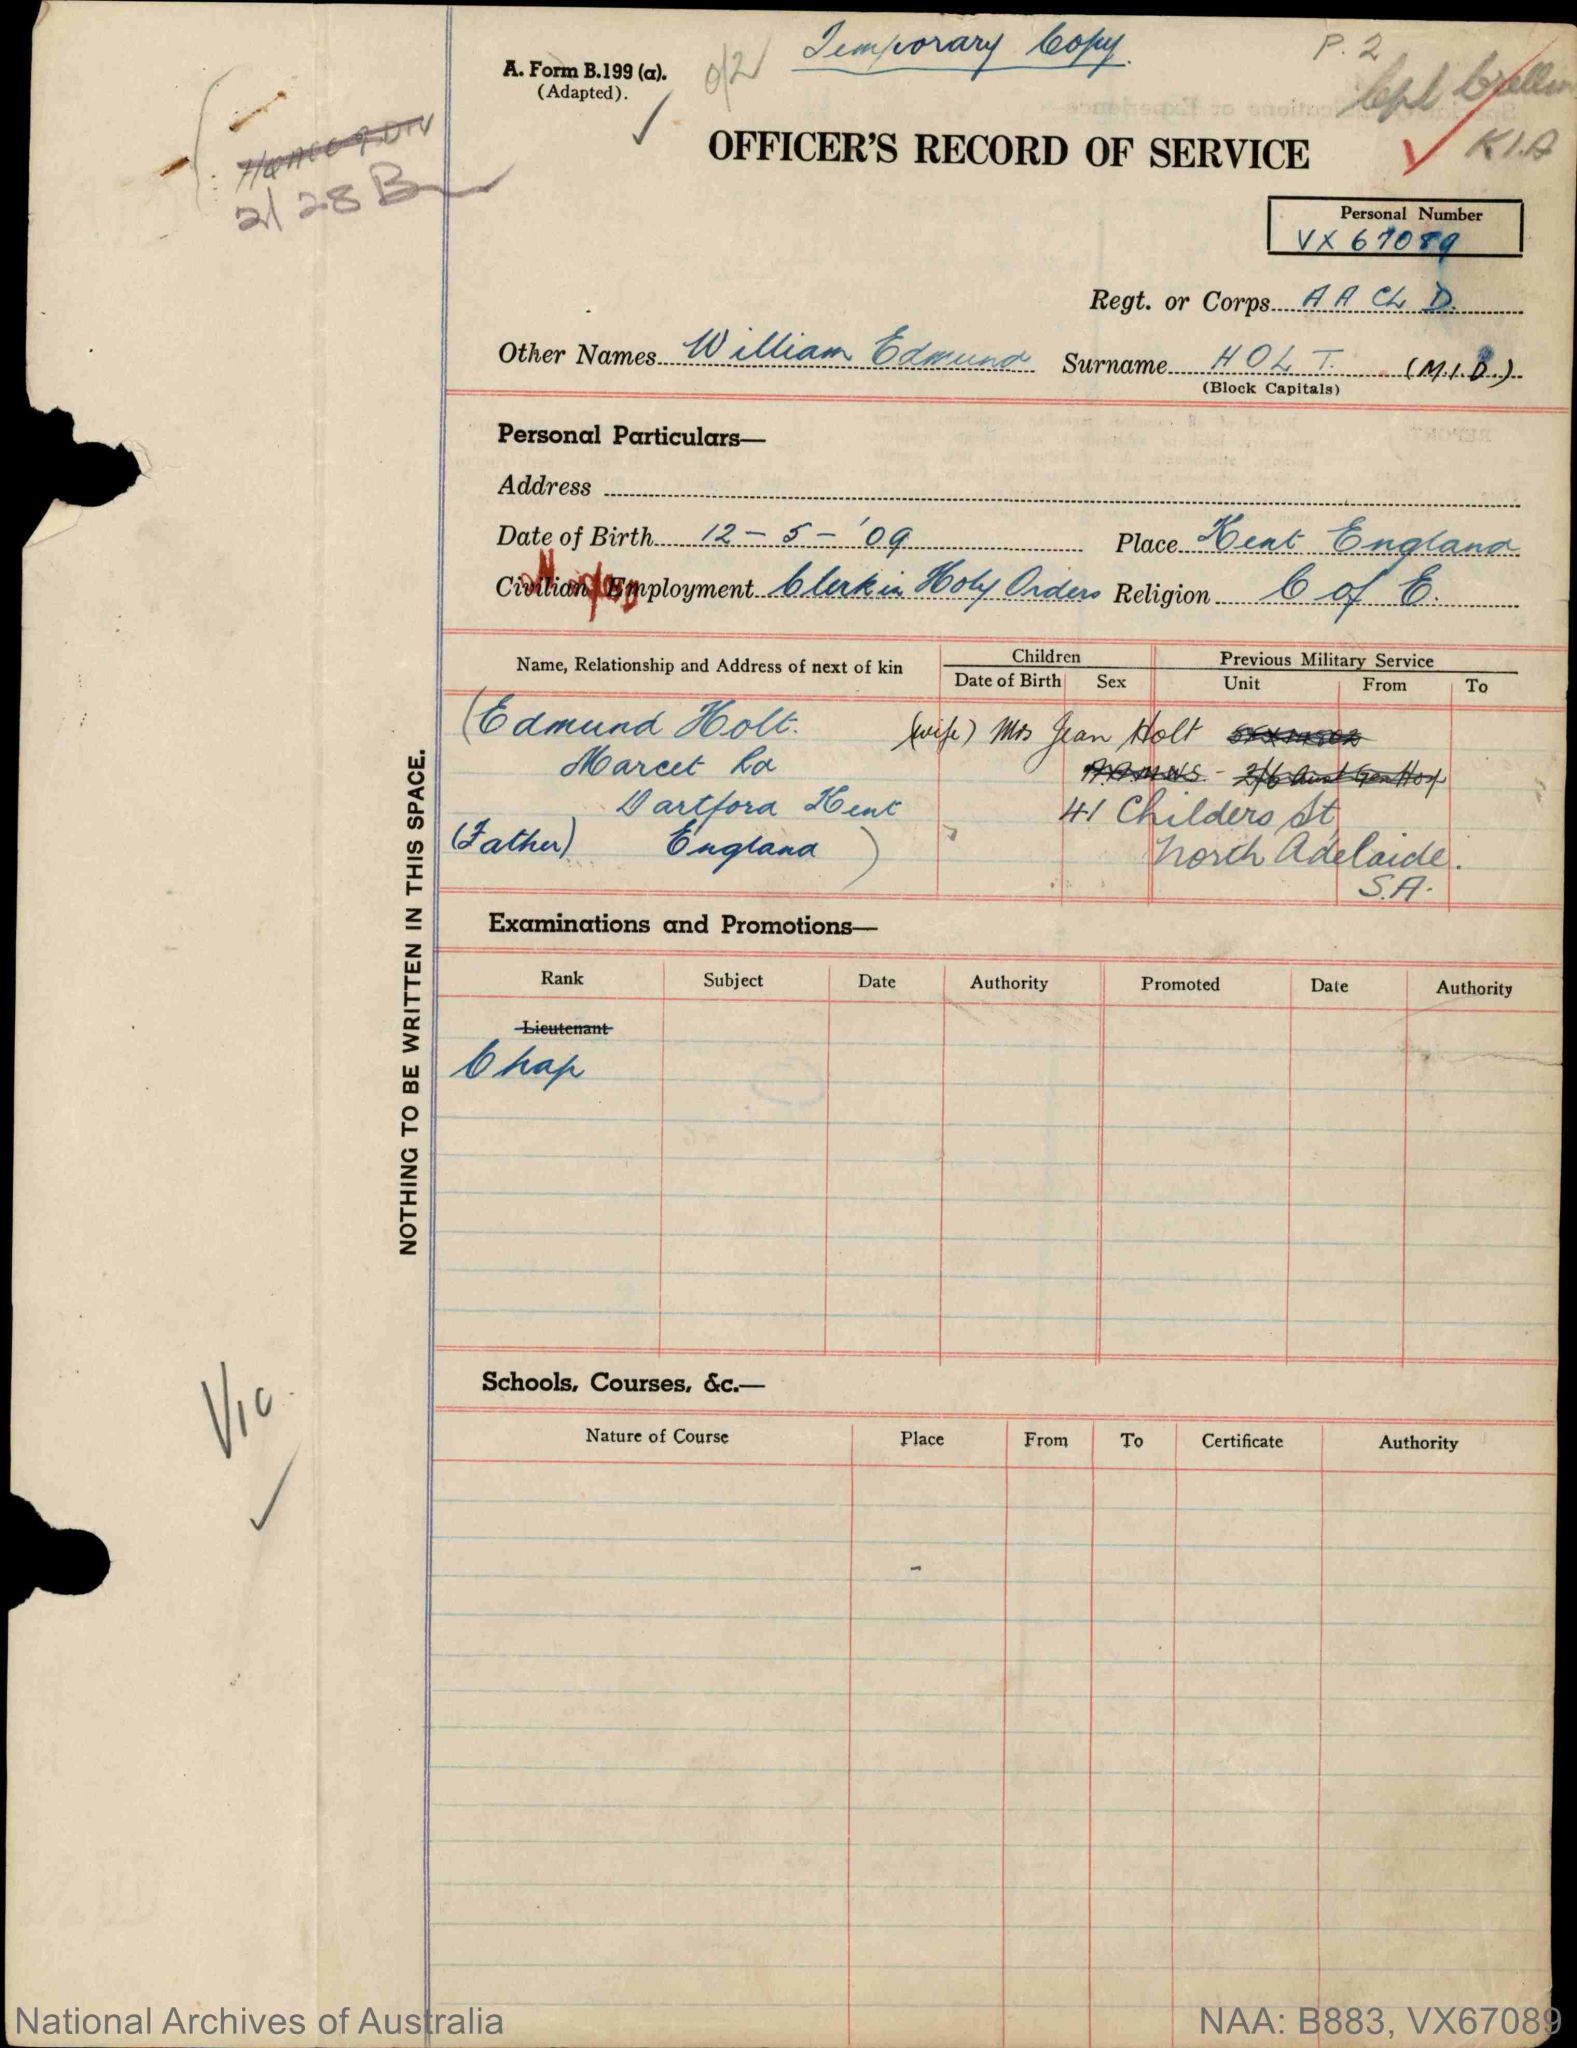 A. Form B.199 (a).
(Adapted).
Temporary Copy.
P. 2
Cpl
K.I.A
2/28 B
OFFICER'S RECORD OF SERVICE
Personal Number
VX 67089
Regt. or Corps A A Ch D.
Other Names William Edmund Surname HOLT. (M.I.D.)
(Block Capitals)
Personal Particulars—
Address
Date of Birth 12 – 5 – '09 Place Kent England
Civilian Employment Clerk in Holy Orders Religion C of E.
Name, Relationship and Address of next of kin Children Previous Military Service
Date of Birth Sex Unit From To
(Edmund Holt. (wife) Mrs Jean Holt
Marcet Rd
A.A.M.W.S. - 2/6 Aust Gen Hosp
Dartford Kent 41 Childers St
(Father) England ) North Adelaide.
S.A.
Examinations and Promotions—
Rank Subject Date Authority Promoted Date Authority
Lieutenant
Chap
NOTHING TO BE WRITTEN IN THIS SPACE.
Vic.
Schools, Courses, &c.—
Nature of Course Place From To Certificate Authority
National Archives of Australia NAA: B883, VX67089